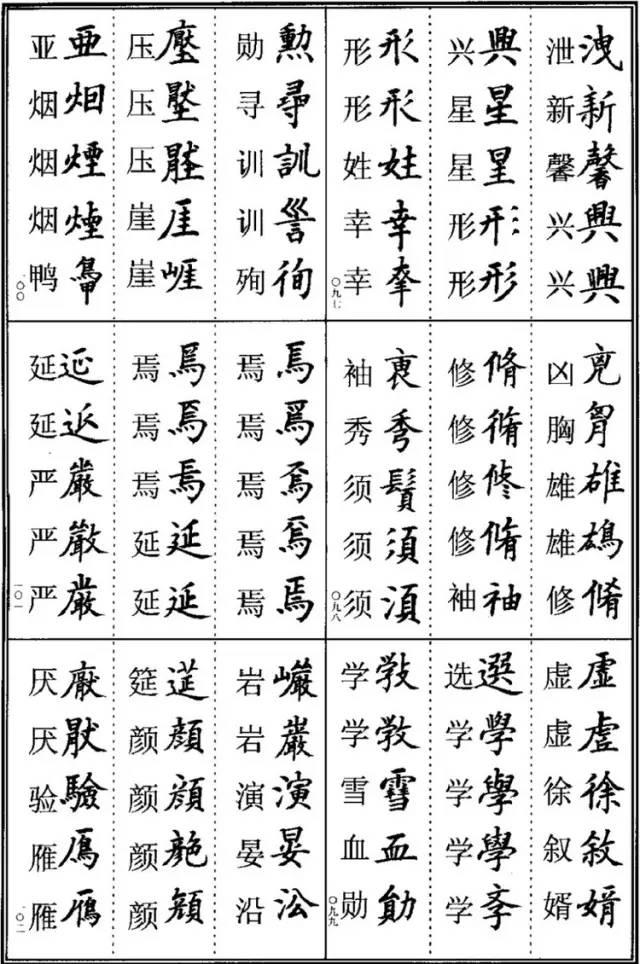 泄 洩
新 新
馨 馨
兴 興
兴 興
兴 興
星 星
星 星
形 形
形 形
形 形
形 形
姓 姓
幸 幸
幸 㚔
〇九七
勋 勲
寻 尋
训 訓
训 訔
殉 徇
压 壓
压
压
崖 崖
崖 崕
亚 亜
烟 烟
烟 煙
烟 煙
鸭
一〇〇
凶
胸 胷
雄 雄
雄 鴆
修 脩
修 脩
修 脩
修 修
修 脩
袖 袖
袖 裒
秀 秀
须 鬚
须 須
须 湏
〇九八
焉 焉
焉 焉
焉 焉
焉 焉
焉 焉
焉 焉
焉 焉
焉 焉
延 延
延 延
延 延
延
严 嚴
严
严 巌
一〇一
虚 虚
虚 虗
徐 徐
叙 敘
婿 婿
选 選
学 學
学 學
学 學
学 斈
学 斅
学 教
雪 雪
血 血
勋 勛
〇九九
岩 巗
岩 巌
演 演
晏 晏
沿 㳂
筵 莚
颜 顔
颜 顔
颜
颜 顔
厌 厭
厌 猒
验 驗
雁 鴈
雁 鴈
一〇二